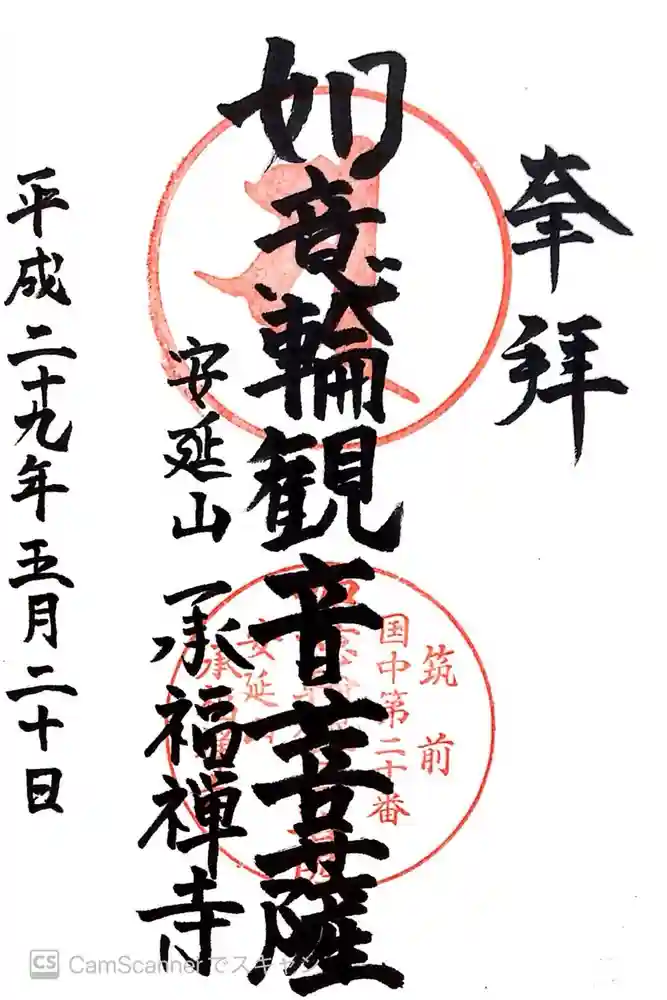 奉拝
如意輪観音菩薩
安延山 承福禅寺
平成二十九年五月二十日
筑前
国中第二十番
安延山
承
CS CamScannerでスキャン